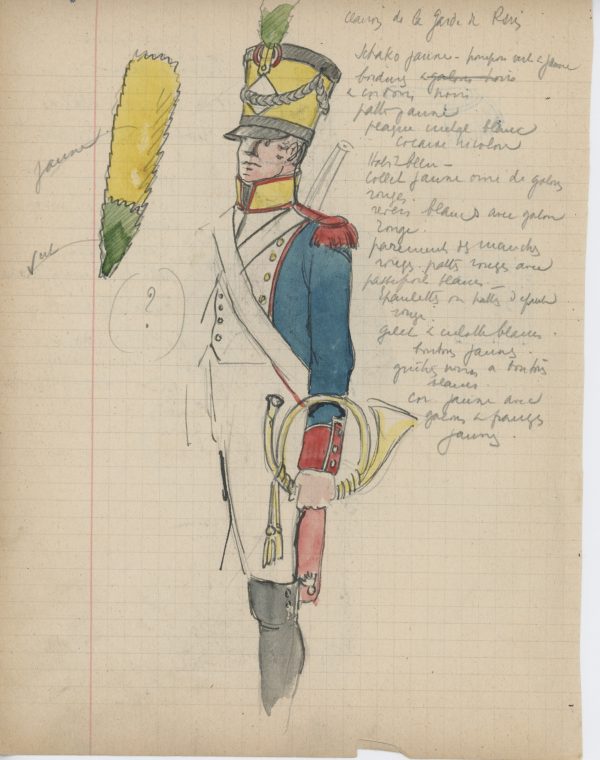 clairon de la Garde de Paris
Schako jaune - pompon vert & jaune
bordures galons noirs
& cordons noirs
patte jaune
plaque métal blanc
cocarde tricolore
Habit bleu -
Collet jaune orné de galons
rouges
revers blancs avec galon
rouge
parements des manches
rouges pattes rouges avec
passepoil blanc
épaulettes ou patte d'épaule
rouge
gilet & culotte blancs
boutons jaunes
guêtres noires à boutons
blancs
cor jaune avec
galons & franges
jaunes.
jaune
vert
?